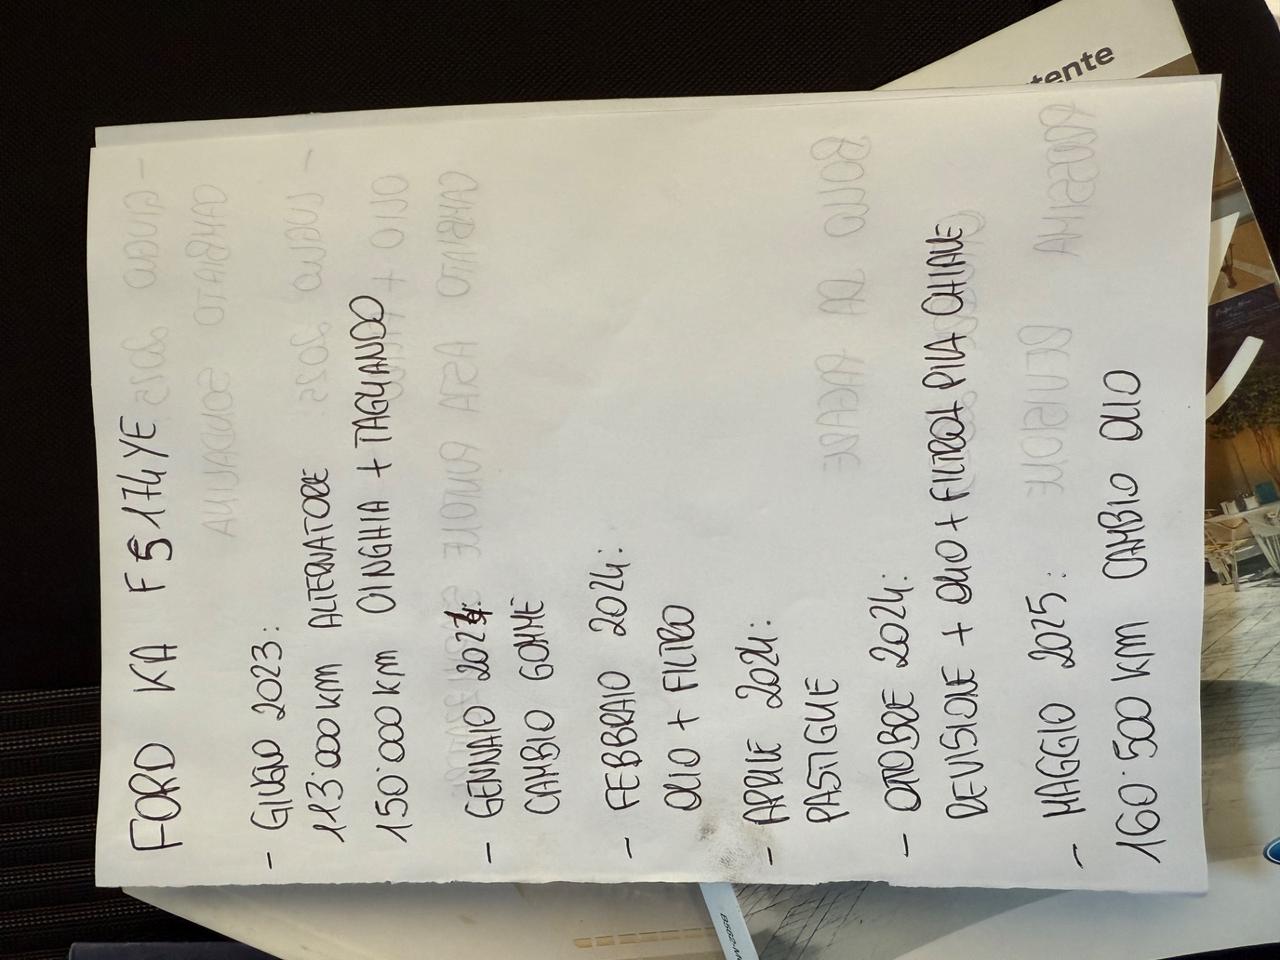 FORD KA F5174YE
- GIUGNO 2023:
113'000 KM ALTERNATORE
150'000 KM CINGHIA + TAGLIANDO
- GENNAIO 2024:
CAMBIO GOMME
- FEBBRAIO 2024:
OLIO + FILTRO
- APRILE 2024:
PASTIGLIE
- OTTOBRE 2024:
REVISIONE + OLIO + FILTRO + PILA CHIAVE
- MAGGIO 2025:
160'500 KM CAMBIO OLIO
tente